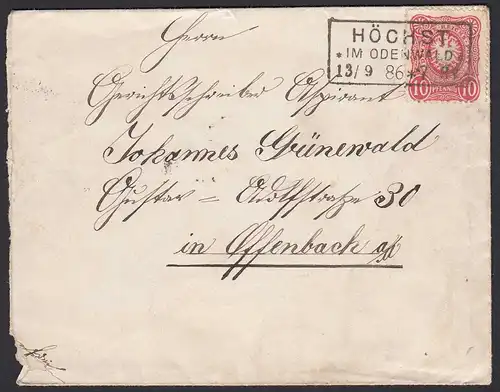 Herrn
HÖCHST
* IM ODENWALD
13/9 86 *
10 PFENNIG 10
Gerichtsschreiber Aspirant
Johannes Grünewald
Gustav = Adolfstraße 30
in Offenbach a/M